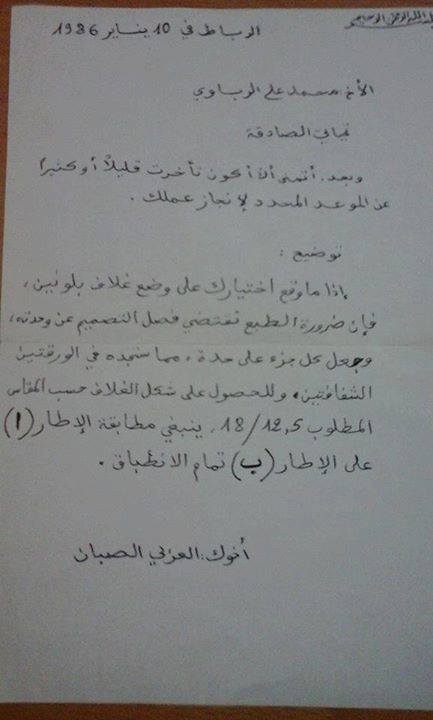 بسم الله الرحمن الرحيم
الرباط في 10 يناير 1986
الأخ: محمد علي الرباوي
تحياتي الصادقة
وبعد. أتمنى ألا أكون تأخرت قليلا أو كثيرا
عن الموعد المحدد لإنجاز عملك.
توضيح:
إذا ما وقع اختيارك على وضع غلاف بلونين،
فإن ضرورة الطبع تقتضي فصل التصميم عن وحدته،
وجعل كل جزء على حدة، مما ستجده في الورقتين
الشفافتين، وللحصول على شكل الغلاف حسب المقاس
المطلوب 18/12,5، ينبغي مطابقة الإطار (ا)
على الإطار (ب) تمام الانطباق.
أخوك: العربي الصبان